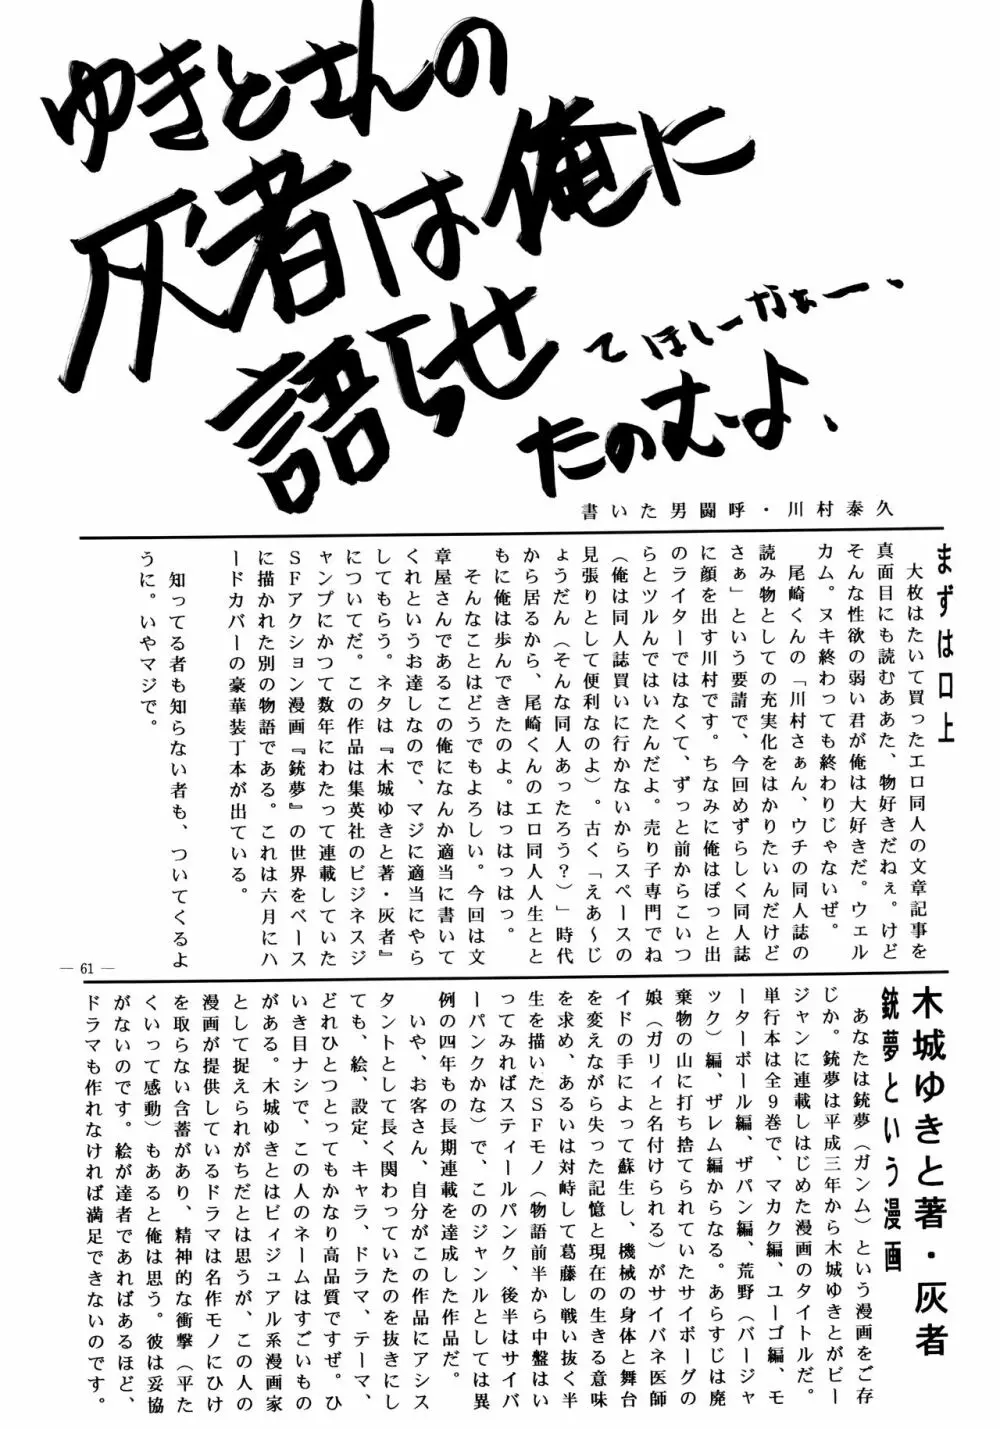 ゆきとさんの
灰者は俺に
語らせ
てほしーなぁー、
たのむよ、
書いた男闘呼・川村泰久
まずは口上
大枚はたいて買ったエロ同人の文章記事を
真面目にも読むああた、物好きだねぇ。けど
そんな性欲の弱い君が俺は大好きだ。ウェル
カム。ヌキ終わっても終わりじゃないぜ。
尾崎くんの「川村さぁん、ウチの同人誌の
読み物としての充実化をはかりたいんだけど
さぁ」という要請で、今回めずらしく同人誌
に顔を出す川村です。ちなみに俺はぽっと出
のライターではなくて、ずっと前からこいつ
らとツルんではいたんだよ。売り子専門でね
(俺は同人誌買いに行かないからスペースの
見張りとして便利なのよ)。古く「えあ〜じ
ょうだん(そんな同人あったろう?)」時代
から居るから、尾崎くんのエロ同人人生とと
もに俺は歩んできたのよ。はっはっはっ。
そんなことはどうでもよろしい。今回は文
章屋さんであるこの俺になんか適当に書いて
くれというお達しなので、マジに適当にやら
してもらう。ネタは『木城ゆきと著・灰者』
についてだ。この作品は集英社のビジネスジ
ャンプにかつて数年にわたって連載していた
SFアクション漫画『銃夢』の世界をベース
に描かれた別の物語である。これは六月にハ
ードカバーの豪華装丁本が出ている。
知ってる者も知らない者も、ついてくるよ
うに。いやマジで。
木城ゆきと著・灰者
銃夢という漫画
あなたは銃夢(ガンム)という漫画をご存
じか。銃夢は平成三年から木城ゆきとがビー
ジャンに連載しはじめた漫画のタイトルだ。
単行本は全9巻で、マカク編、ユーゴ編、モ
ーターボール編、ザパン編、荒野(バージャ
ック)編、ザレム編からなる。あらすじは廃
棄物の山に打ち捨てられていたサイボーグの
娘(ガリィと名付けられる)がサイバネ医師
イドの手によって蘇生し、機械の身体と舞台
を変えながら失った記憶と現在の生きる意味
を求め、あるいは対峙して葛藤し戦い抜く半
生を描いたSFモノ(物語前半から中盤はい
ってみればスティールパンク、後半はサイバ
ーパンクかな)で、このジャンルとしては異
例の四年もの長期連載を達成した作品だ。
いや、お客さん、自分がこの作品にアシス
タントとして長く関わっていたのを抜きにし
ても、絵、設定、キャラ、ドラマ、テーマ、
どれひとつとってもかなり高品質ですぜ。ひ
いき目ナシで、この人のネームはすごいもの
がある。木城ゆきとはビィジュアル系漫画家
として捉えられがちだとは思うが、この人の
漫画が提供しているドラマは名作モノにひけ
を取らない含蓄があり、精神的な衝撃(平た
くいって感動)もあると俺は思う。彼は妥協
がないのです。絵が達者であればあるほど、
ドラマも作れなければ満足できないのです。
— 61 —